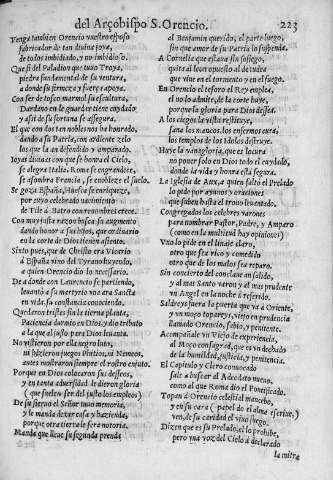 del Arçobispo S. Orencio.
223
Venga tambien Orencio vuestro esposo
fabricador de tan divina joya,
de todos imbidiado, y no imbidioso.
Que si del Paladion que tuvo Troya,
piedra fundamental de su ventura,
a donde su firmeza y fuerça apoya,
Con ser de tosco marmol su escultura,
Dardano en le guardar tiene cuydado
y assi de su fortuna se assegura.
El que con dos tan nobles nos ha honrado,
dando a su Patria, con ardiente zelo
los que la an defendido y amparado,
Joyas divinas con que se honra el Cielo,
se alegra Italia, Roma se engrandece,
se assombra Francia, se enoblece el suelo.
Se goza España, Huesca se enriquece,
por cuyo celebrado nacimiento
de Tile à Batro con renombres crece.
Con muy justa razon busca augmento
dando honor a sus hijos, que ordinario
en la corte de Dios tienen assiento.
Sixto pues, que de Christo era Vicario
à España vino del Tyrano huyendo,
a quien Orencio dio lo necessario.
De a donde con Laurencio se partiendo,
levantò a su martyrio otra ara Sancta
en vida, su constancia conociendo.
Quedaron tristes sin la tierna planta,
Paciencia durmio en Dios, y dio tributo
a la que al justo para Dios levanta.
No vistieron por ella negro luto,
ni hizieron juegos Pintios, ni Nemeos,
antes mostraron siempre el rostro enjuto.
Porque en Dios colocaron sus desseos,
y en tanta adversidad le dieron gloria
(que suelen ser del justo los empleos)
De su siervo el Señor tuvo memoria,
y le manda dexar casa y hazienda,
porque otra tierra le sera notoria.
Manda que lleve su segunda prenda
al Benjamin querido, el parte luego,
sin que amor de su Patria lo suspenda.
A Cornelia que estava sin sossiego,
quita al leon opuesto al detuvdra
que vive en el tormento y en el fuego.
En Orencio el tesoro el Rey emplea,
el no lo admite, de la corte huye,
porque la gloria para Dios dessea.
A los ciegos la vista restituye,
sana los mancos, los enfermos cura,
los templos de los Idolos destruye.
Haze la vanagloria, que es locura
no poner solo en Dios todo el cuydado,
donde la vida y honra està segura.
La Iglesia de Aux, a quien falta el Prelado
le pide por ayunos y oraciones
que suben hasta el trono levantado.
Congregados los celebres varones
para nombrar Pastor, Padre, y Amparo
(como en la multitud hay opiniones)
Uno lo pide en el linaje claro,
otro que sea rico y comedido
otro que de los malos sea reparo.
Sin concierto del conclave an salido,
y al mas Santo varon y el mas prudente
un Angel en la noche à referido.
Saldreys fuera la puerta que va a Oriente,
y un moço topareys, viejo en prudencia
llamado Orencio, sabio, y penitente.
Acompañale un Viejo de experiencia,
al Moço consagrad, que es un dechado
de la humildad, justicia, y penitencia.
El Capitulo y Clero convocado
sale a buscar al Adeodato nuevo,
como al que Roma dio el Pontificado.
Topan à Orencio celestial mancebo,
y en su cara (papel do el alma escrive)
ven, de su caridad el vivo fuego.
Dizen que es su Prelado, el lo prohibe,
pero una voz del Cielo à declarado
la mitra